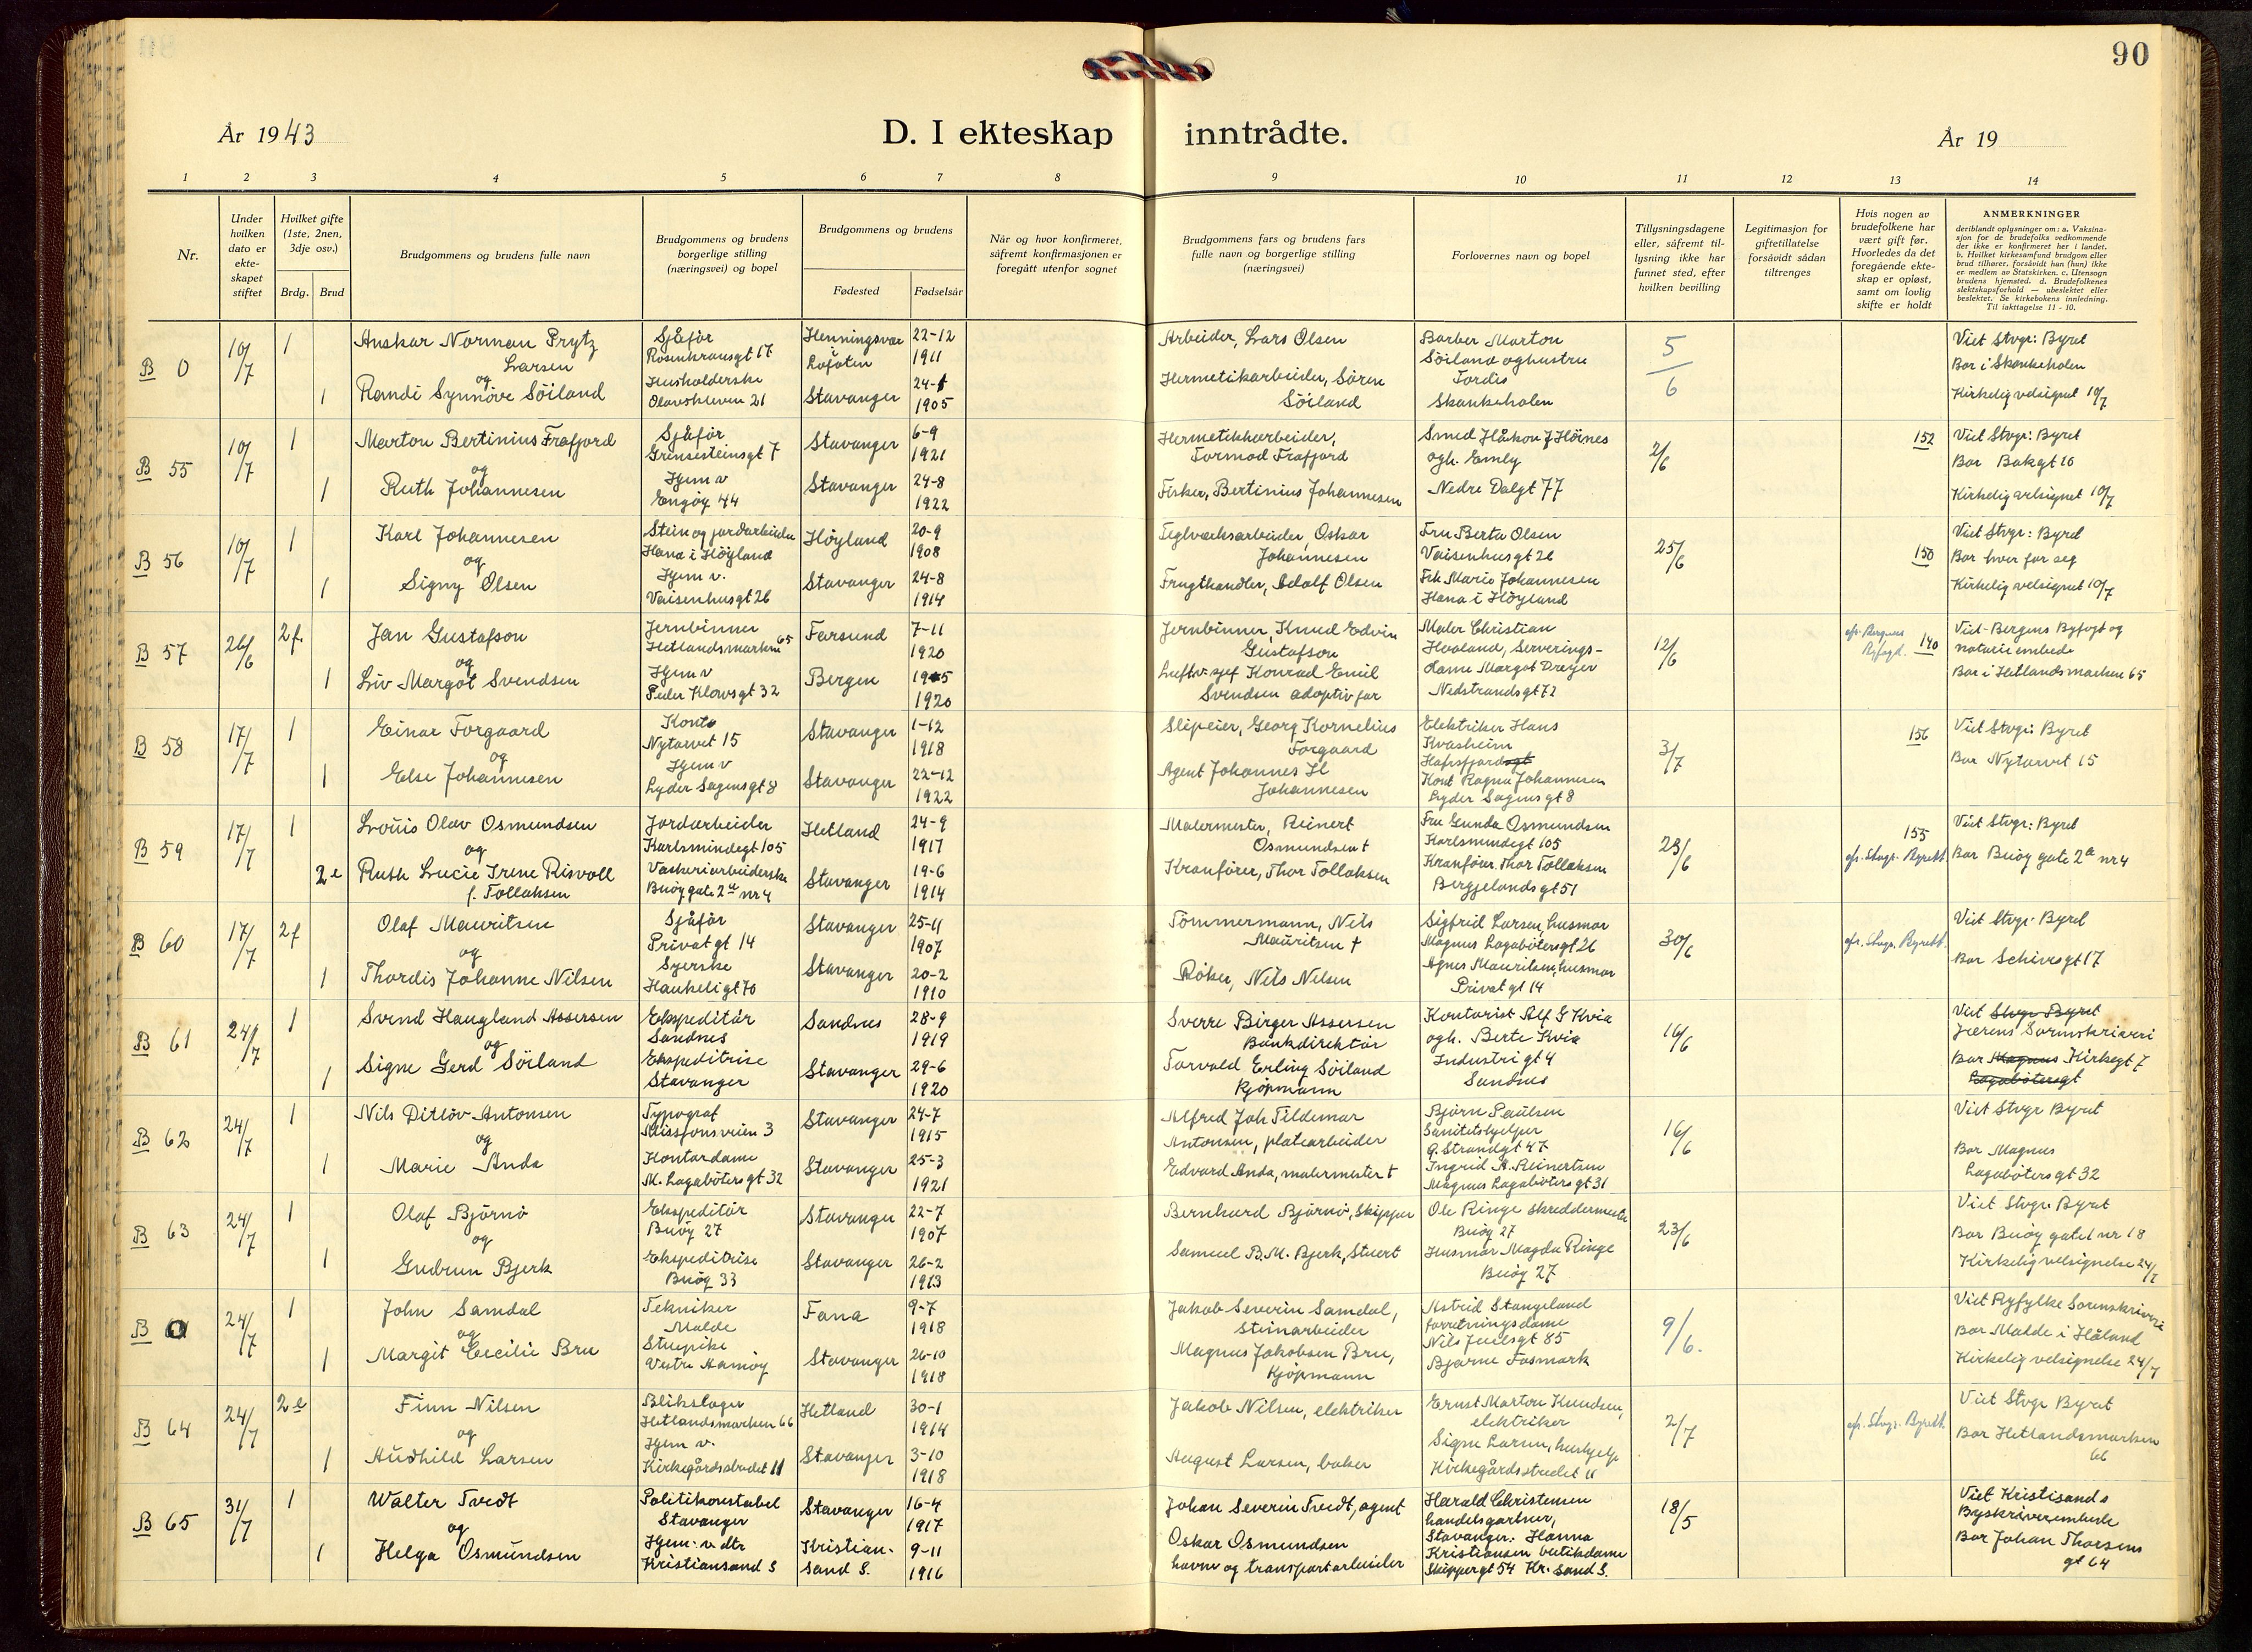 90
År 1943
D. I ekteskap inntrådte.
År 19
1 2 3 4 5 6 7 8 9 10 11 12 13 14
Nr.
Under hvilken dato er ekte-skapet stiftet
Hvilket gifte (1ste, 2nen, 3dje osv.)
Brdg. Brud
Brudgommens og brudens fulle navn
Brudgommens og brudens borgerlige stilling (næringsvei) og bopel
Brudgommens og brudens
Fødested Fødselsår
Når og hvor konfirmeret, såfremt konfirmasjonen er foregått utenfor sognet
Brudgommens fars og brudens fars fulle navn og borgerlige stilling (næringsvei)
Forlovernes navn og bopel
Tillysningsdagene eller, såfremt til-lysning ikke har funnet sted, efter hvilken bevilling
Legitimasjon for giftetillatelse forsåvidt sådan tiltrenges
Hvis nogen av brudefolkene har vært gift før. Hvorledes da det foregående ekte-skap er opløst, samt om lovlig skifte er holdt
ANMERKNINGER
deriblandt oplysninger om: a. Vaksina-sjon for de brudefolks vedkommende der ikke er konfirmeret her i landet. b. Hvilket kirkesamfund brudgom eller brud tilhører, forsåvidt han (hun) ikke er medlem av Statskirken. c. Utensogn brudens hjemsted. d. Brudefolkenes slektskapsforhold — ubeslektet eller beslektet. Se kirkebokens innledning. Til iakttagelse 11 - 10.
B 0
10/7
1
Anskar Norman Prytz Larsen
og
1
Randi Synnöve Söiland
Sjåfør
Rosenkransgt 17
Husholderske
Olavskleven 21
Henningsvær
Lofoten
22-12
1911
Stavanger
24-1
1905
Arbeider, Lars Olsen
Hermetikarbeider, Sören
Söiland
Barber Morton
Söiland og hustru
Tordis
Skankeholen
5/6
Viet Stvgr: Byret
Bor i Skankeholen
Kirkelig velsignet 10/7
B 55
10/7
1
Morton Bertinius Frafjord
og
1
Ruth Johannesen
Sjåfør
Grensesteinsgt 7
Hjem v
Engöy 44
Stavanger
6-9
1921
Stavanger
24-8
1922
Hermetikkarbeider,
Tormod Frafjord
Fisker, Bertinius Johannesen
Smed Håkon J Höines
ogh. Emly
Nedre Dalgt 77
2/6
152
Viet Stvgr: Byret
Bor Bakgt 16
Kirkelig velsignet 10/7
B 56
10/7
1
Karl Johannesen
og
1
Signy Olsen
Stein og jordarbeider
Hana i Höyland
Hjem v.
Vaisenhusgt 26
Höyland
20-9
1908
Stavanger
24-8
1914
Teglverksarbeider, Oskar
Johannesen
Frugthandler, Adolf Olsen
Fru Berta Olsen
Vaisenhusgt 26
Frk. Marie Johannesen
Hana i Höyland
25/6
150
Viet Stvgr: Byret
Bor hver for seg
Kirkelig velsignet 10/7
B 57
26/6
2 f.
Jan Gustafson
og
1
Liv Margot Svendsen
Jernbinner
Hetlandsmarken 65
Hjem v
Peder Klowsgt 32
Farsund
7-11
1920
Bergen
19-5
1920
Jernbinner, Knud Edvin
Gustafson
Konrad Emil
Svendsen adoptivfar
Maler Christian
Hovland, Serverings-
dame Margot Dreyer
Nedstrandsgt 72
12/6
140
Viet - Bergens Byfogt og
notarii embede
Bor i Hetlandsmarken 65
B 58
17/7
1
Einar Torgaard
og
1
Else Johannesen
Kont.
Nytorvet 15
Hjem v
Lyder Sagensgt 8
Stavanger
1-12
1918
Stavanger
22-12
1922
Slipeier, Georg Kornelius
Torgaard
Agent Johannes H
Johannesen
Elektriker Hans
Kvasheim
Hafrsfjordsgt
Kont Ragna Johannesen
Lyder Sagensgt 8
3/7
156
Viet Stvgr: Byret
Bor Nytorvet 15
B 59
17/7
1
Louis Olav Osmundsen
og
2 e
Ruth Lucie Irene Risvoll
f. Tollaksen
Jordarbeider
Karlsmindegt 105
Vaskeriarbeiderske
Buöy gate 2a nr 4
Hetland
24-9
1917
Stavanger
19-6
1914
Malermester, Reinert
Osmundsen †
Kranfører, Thor Tollaksen
Fru Gunda Osmundsen
Karlsmindegt 105
Kranfører Thor Tollaksen
Bergjelandsgt 51
23/6
155
ofr. Stvgr. Byrett.
Viet Stvgr: Byret
Bor Buöy gate 2a nr 4
B 60
17/7
2 f
Olaf Mauritsen
og
1
Thordis Johanne Nilsen
Sjåför
Privatgt 14
Syerske
Haukeligt 70
Stavanger
25-11
1907
Stavanger
20-2
1910
Tömmermann, Nils
Mauritsen †
Röker, Nils Nelsen
Sigfrid Larsen, husmor
Magnus Lagabötersgt 26
Agnes Mauritsen, husmor
Privatgt 14
30/6
ofr. Stvgr. Byrett.
Viet Stvgr. Byret
Bor Schivesgt 17
B 61
24/7
1
Svend Haugland Assersen
og
1
Signe Gerd Söiland
Ekspeditör
Sandnes
Ekspeditrise
Stavanger
Sandnes
28-9
1919
Stavanger
29-6
1920
Sverre Birger Assersen
Bankdirektör
Torvald Erling Söiland
Kjöpmann
Kontorist Alf G Kvia
ogh. Berte Kvia
Industrigt 4
Sandnes
16/6
Viet Stvgr Byret
Jærens Sornskriveri
Bor Magnus Kirkegt 7
Lagabötersgt
B 62
24/7
1
Nils Ditlöv Antonsen
og
1
Marie Anda
Typograf
Missjonsveien 3
Kontordame
M. Lagabötersgt 32
Stavanger
24-7
1915
Stavanger
25-3
1921
Alfred Joh Tildemar
Antonsen, platearbeider
Edvard Anda, malermester †
Björn Paulsen
Sanitetshjelper
G. Strandgt 47
Ingrid A. Reinertsen
Magnus Lagabötersgt 31
16/6
Viet Stvgr Byret
Bor Magnus
Lagabötersgt 32
B 63
24/7
1
Olaf Björnö
og
1
Gudrun Bjerk
Ekspeditör
Buöy 27
Ekspeditrise
Buöy 33
Stavanger
22-7
1907
Stavanger
26-2
1913
Bernhard Björnö, Skipper
Samuel B.M. Bjerk, Stuert
Ole Ringe skreddermester
Buöy 27
Husmor Magda Ringe
Buöy 27
23/6
Viet Stvgr. Byret
Bor Buöy gate 1 nr 18
Kirkelig velsignelse 24/7
B 0
24/7
1
John Samdal
og
1
Margit Cecilie Bru
Tekniker
Malde
Stuepike
Vestre Åmöy
Fana
9-7
1918
Stavanger
26-10
1918
Jakob Severin Samdal,
Steinarbeider
Magnus Jakobsen Bru,
Kjöpmann
Astrid Stangeland
forretningsdame
Nils Juelsgt 85
Bjarne Fosmark
9/6.
Viet Ryfylke Sorenskriveri
Bor Malde i Håland
Kirkelig velsignelse 24/7
B 64
24/7
2 e
Finn Nilsen
og
1
Audhild Larsen
Blikslager
Hetlandsmarken 66
Hjem v.
Kirkegårdsstredet 11
Hetland
30-1
1914
Stavanger
3-10
1918
Jakob Nilsen, elektriker
August Larsen, baker
Ernst Morton Knudsen,
elektriker
Signe Larsen, hushjelp
Kirkegårdsstredet 11
2/7
ofr. Stvgr. Byrett.
Viet Stvgr Byret
Bor Hetlandsmarken
66
B 65
31/7
1
Walter Tvedt
og
1
Helga Osmundsen
Politikonstabel
Stavanger
Hjem. v. dtr
Kristiansand S
Stavanger
16-4
1917
Kristian-
sand S.
9-11
1916
Johan Severin Tvedt, agent
Oskar Osmundsen
havne og transportarbeider
Harald Christensen
handelsgartner,
Stavanger. Hanna
Kristiansen butikdame
Skippergt 54 Kr. sand S.
18/5
Viet Kristisands
Byskriverembede
Bor Johan Thorsens
gt 64